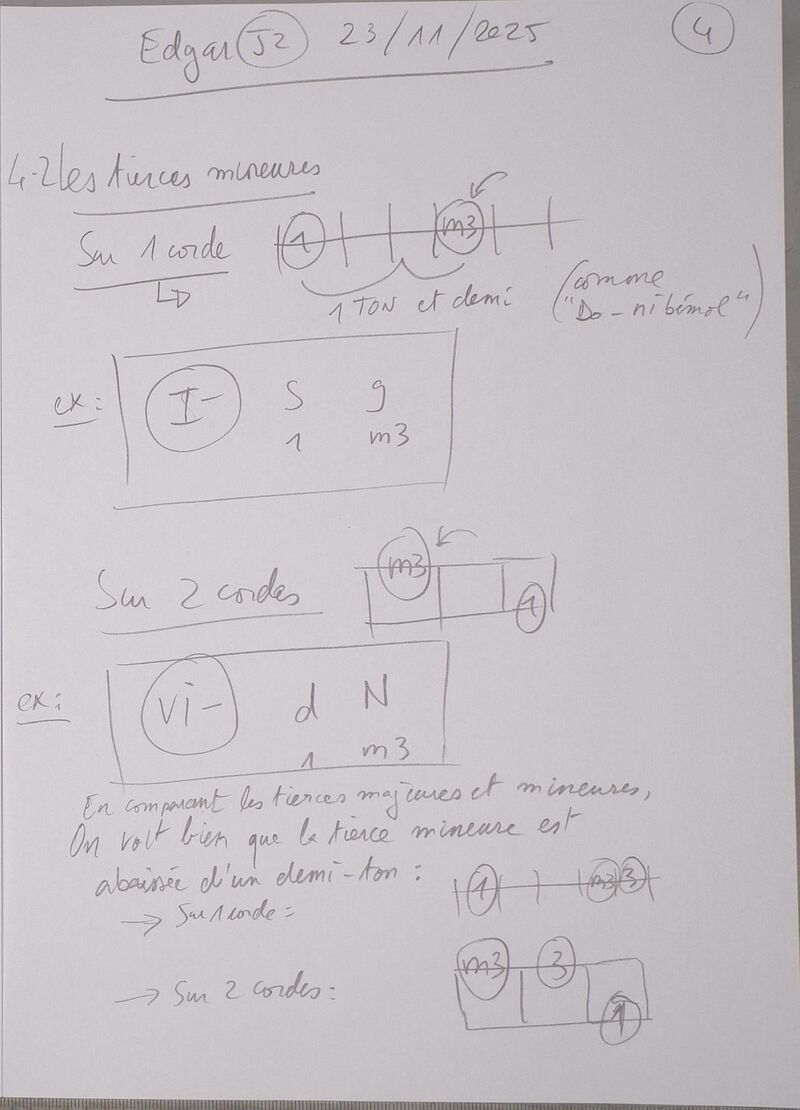 Edgar J2 23/11/2025
4
4-2 les tierces mineures
Sur 1 corde
1 m3
1 TON et demi
(comme
"Do - mi bémol")
ex:
I- S g
1 m3
Sur 2 cordes
m3
1
ex:
vi- d N
1 m3
En comparant les tierces majeures et mineures,
On voit bien que la tierce mineure est
abaissée d'un demi-ton :
→ Sur 1 corde =
1 m3 3
→ Sur 2 cordes :
m3 3
1